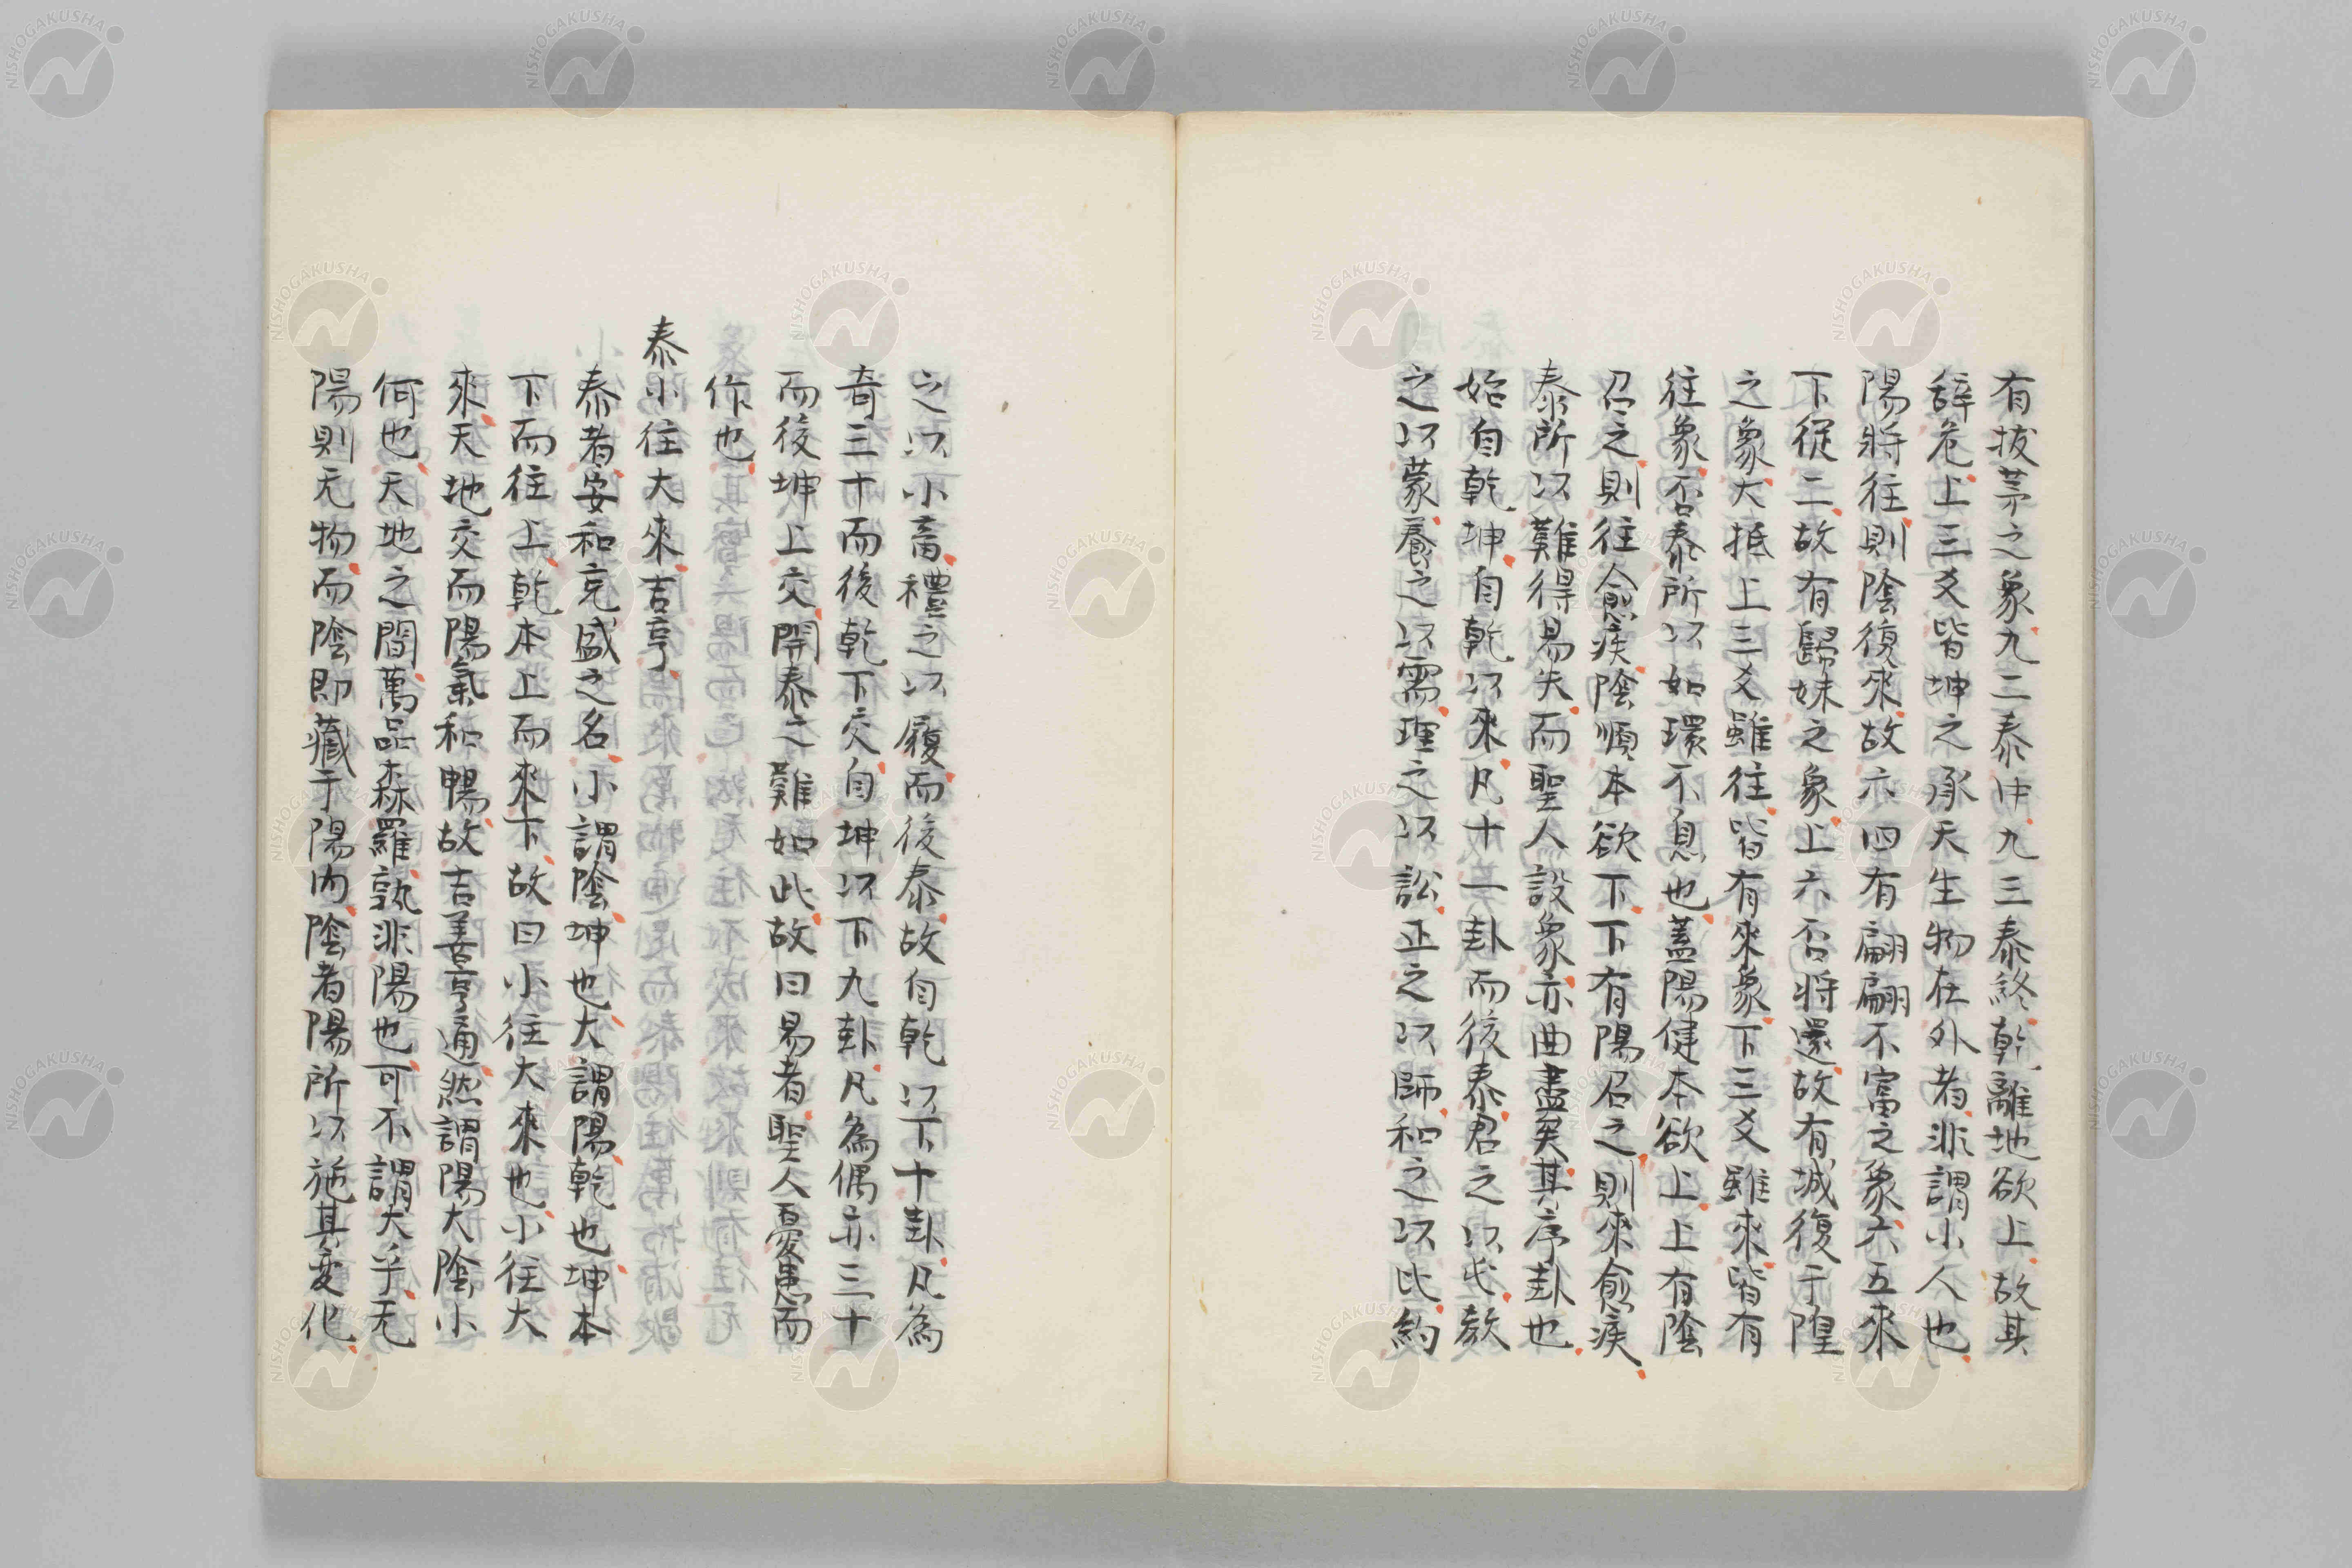 有拔茅之象九二泰中九三泰終乾離地欲上故其
辭危上三爻皆坤之承天生物在外者非謂小人也
陽將往則陰復來故六四有翩翩不富之象六五來
下從二故有歸妹之象上六否將還故有城復于隍
之象大抵上三爻雖往皆有來象下三爻雖來皆有
往象否泰所以如環不息也蓋陽健本欲上上有陰
召之則往愈疾陰順本欲下下有陽召之則來愈疾
泰所以難得易失而聖人設象亦曲盡矣其序卦也
始自乾坤自乾以來凡十一卦而後泰君之以屯教
之以蒙養之以需理之以訟正之以師和之以比約
之以小畜禮之以履而後泰故自乾以下十卦凡為
奇三十而後乾下交自坤以下九卦凡為偶亦三十
而後坤上交開泰之難如此故曰易者聖人憂患而
作也
泰小往大來吉亨
泰者安和充盛之名小謂陰坤也大謂陽乾也坤本
下而往上乾本上而來下故曰小往大來也小往大
來天地交而陽氣和暢故吉善亨通然謂陽大陰小
何也天地之間萬品森羅孰非陽也可不謂大乎无
陽則无物而陰即藏于陽內陰者陽所以施其变化
NISHOGAKUSHA